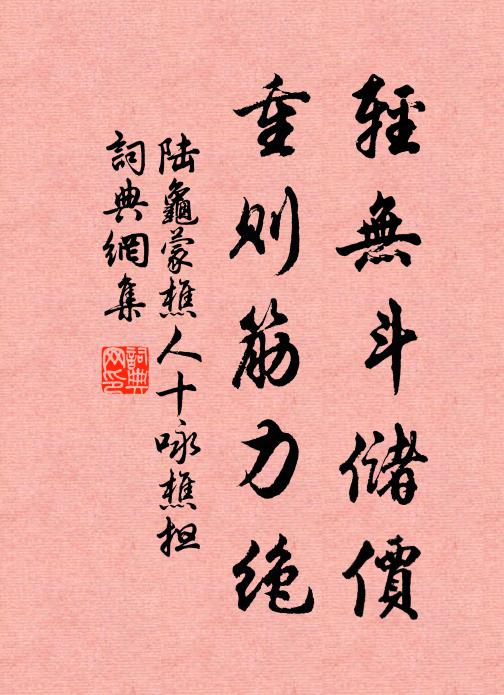 輕無斗儲價
重則筋力絕
陸龜蒙樵人十咏樵担
詞典網集
詞典網印